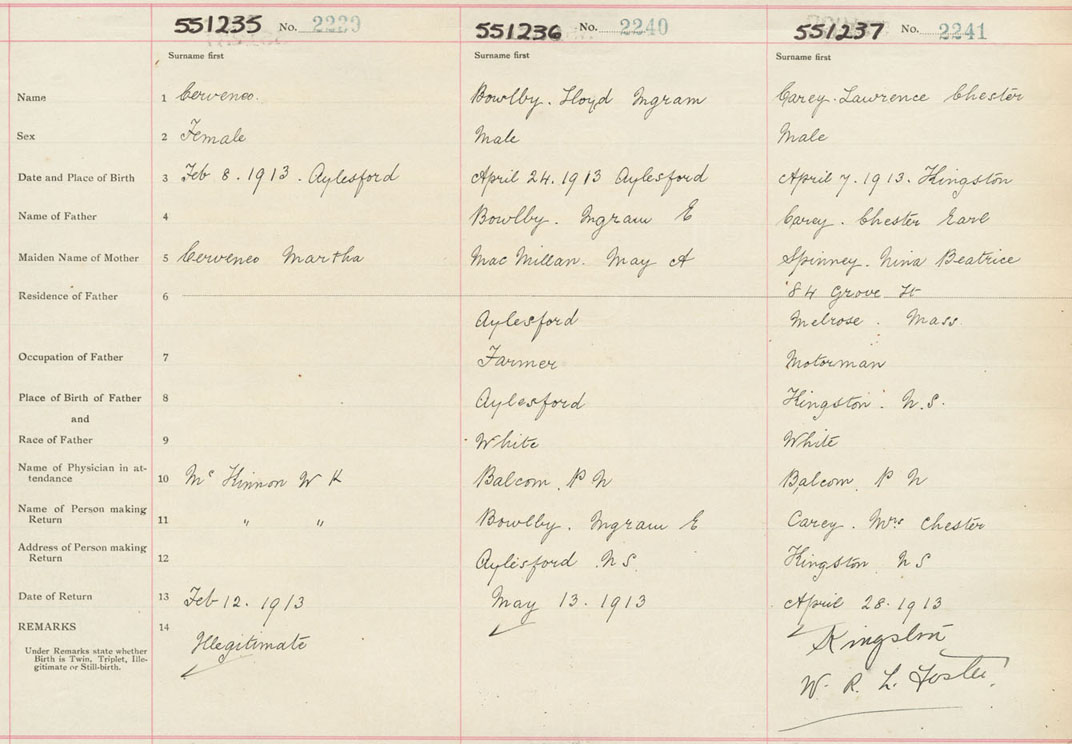 551235 No. 2239 551236 No. 2240 551237 No. 2241
Surname first Surname first Surname first
Name 1 Cerveneo. Bowlby. Lloyd Ingram Carey. Lawrence Chester
Sex 2 Female Male Male
Date and Place of Birth 3 Feb 8. 1913. Aylesford April 24. 1913 Aylesford April 7. 1913. Kingston
Name of Father 4 Bowlby. Ingram E Carey. Chester Earl
Maiden Name of Mother 5 Cerveneo Martha MacMillan. May A Spinney. Nina Beatrice
Residence of Father 6 84 Grove St
Aylesford Melrose. Mass.
Occupation of Father 7 Farmer Motorman
Place of Birth of Father 8 Aylesford Kingston. N.S.
and
Race of Father 9 White White
Name of Physician in at-
tendance 10 McKinnon W K Balcom. P N Balcom. P N
Name of Person making
Return 11 " " Bowlby. Ingram E Carey. Mrs Chester
Address of Person making
Return 12 Aylesford. N S. Kingston N S
Date of Return 13 Feb 12. 1913 May 13. 1913 April 28. 1913
REMARKS 14 Illegitimate Kingston
Under Remarks state whether
Birth is Twin, Triplet, Ille-
gitimate or Still-birth.
W. R. L. Foster.